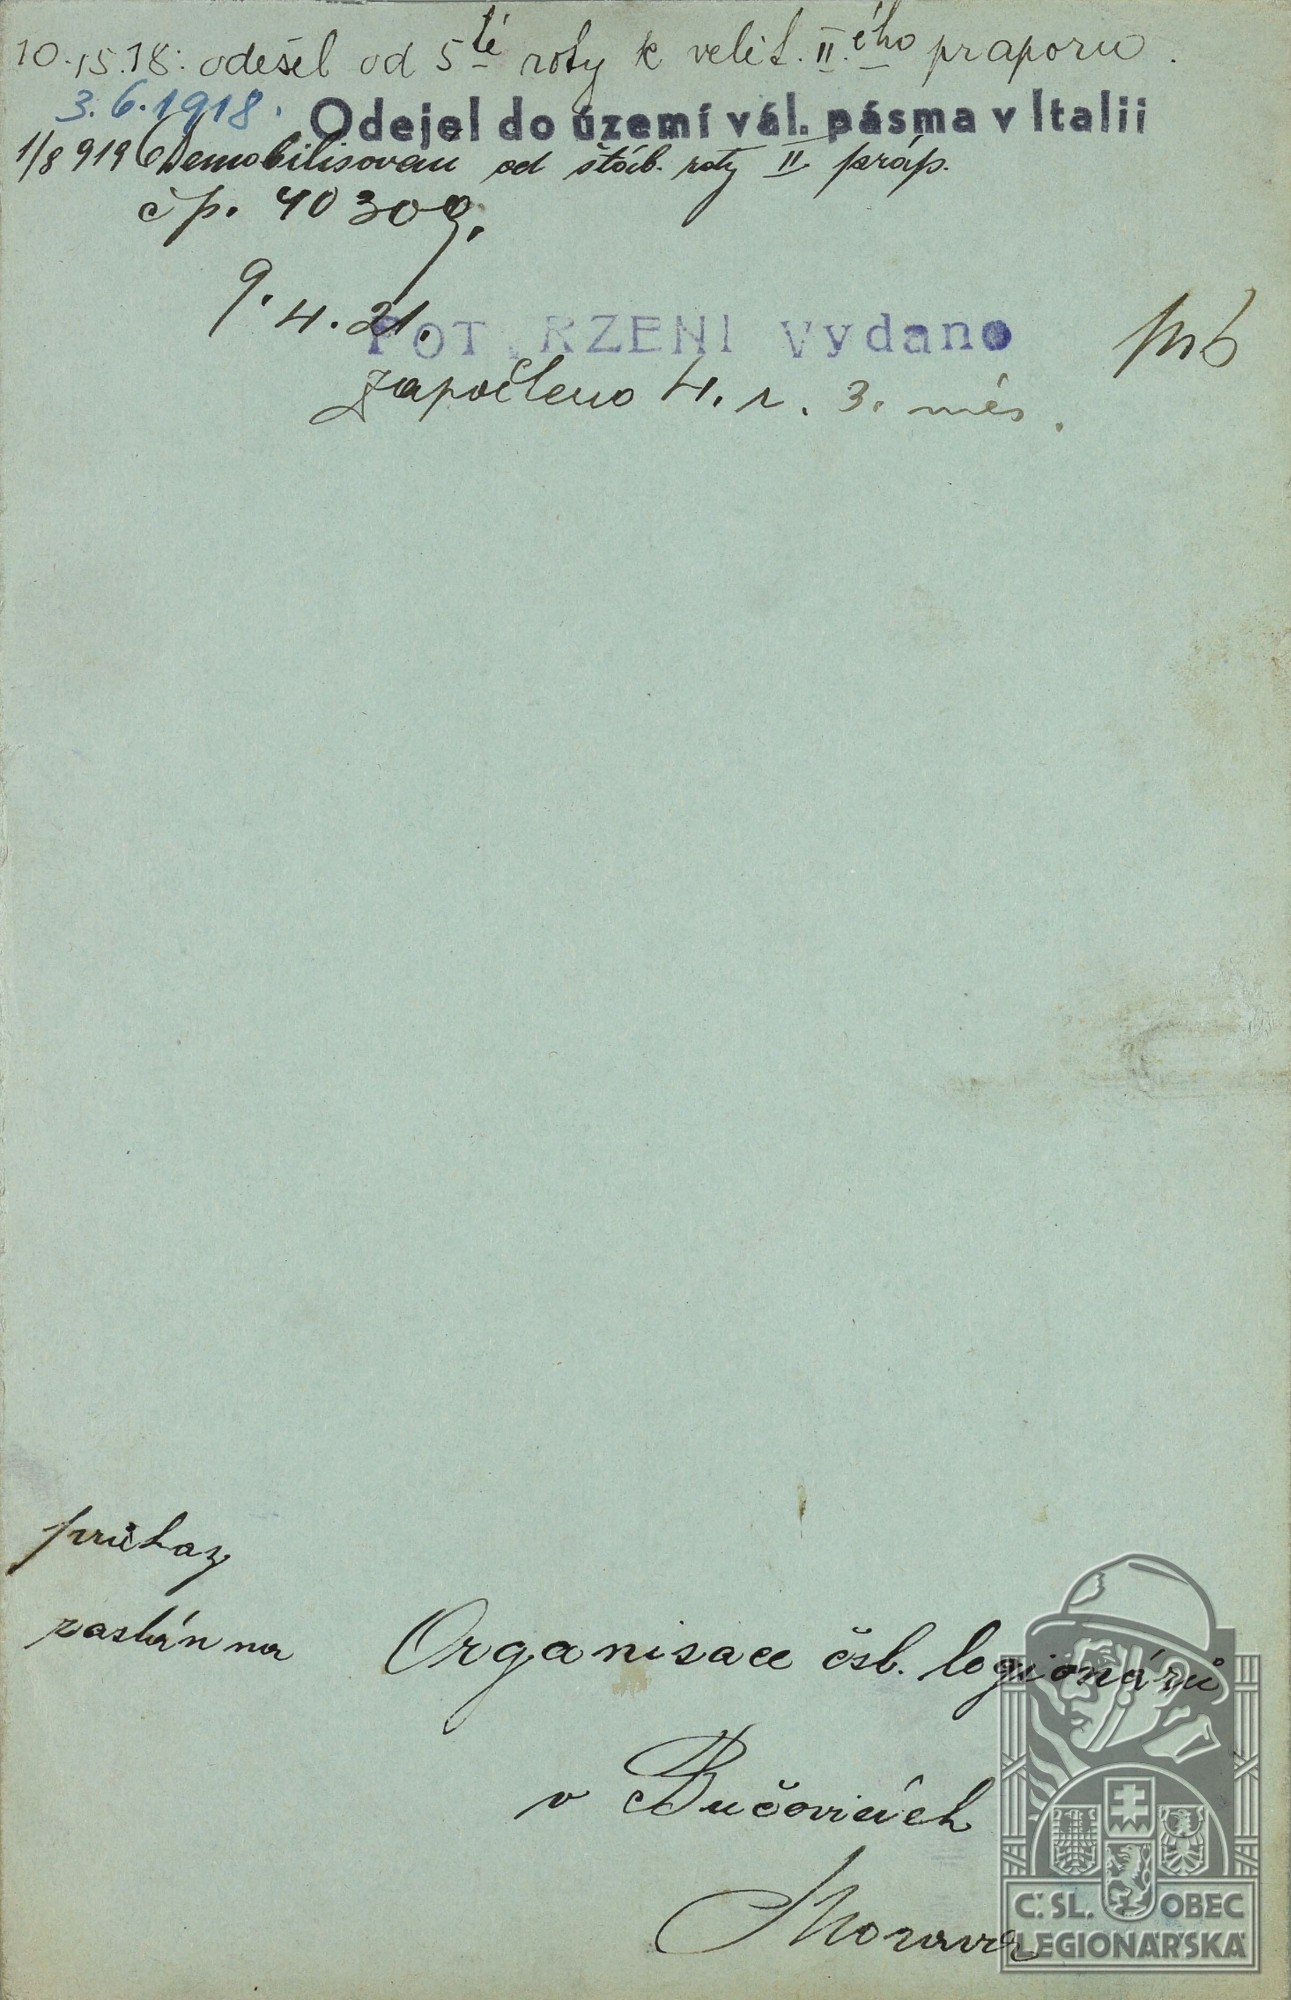 10.15.18. odešel od 5té roty k velit. II.ého praporu.
3.6.1918. Odejel do území vál. pásma v Italii
1/8 919 Demobilisován od štáb. roty II práp.
čp. 40309.
9.4.21.
POT RZENI Vydano
započteno 4. r. 3. měs.
průkaz
zaslán na Organisace čsl. legionářů
v Bučovicích
Morava
Č. SL. OBEC
LEGIONÁŘSKÁ